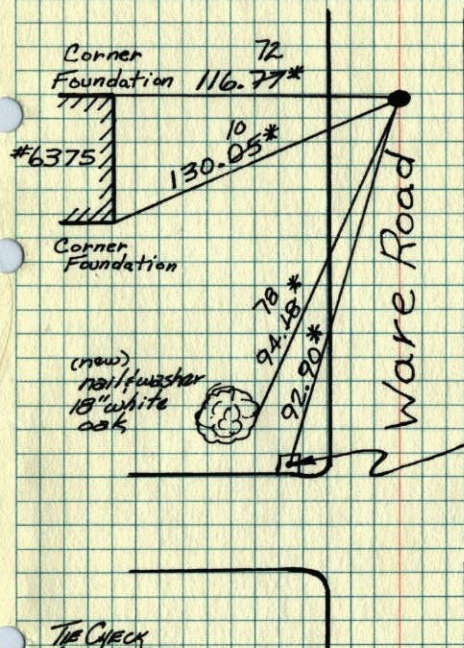 Corner
Foundation
72
116.77*
10
130.05*
#6375
Corner
Foundation
78
94.18*
92.90*
Ware Road
(new)
nail & washer
18" white
oak
TIE CHECK